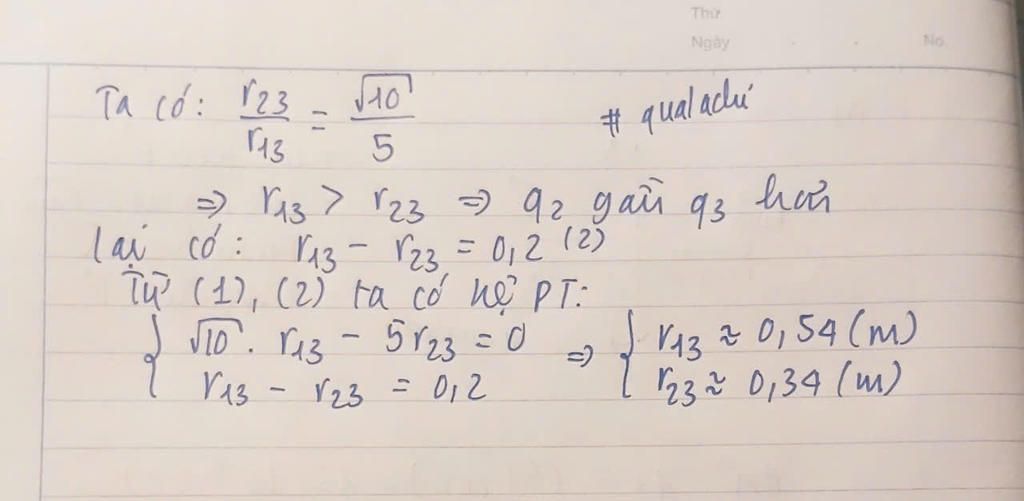 Thứ
Ngày No.
Ta có: r23/r13 = √10/5 # qualachi
⇒ r13 > r23 ⇒ q2 gần q3 hơn
Lại có: r13 − r23 = 0,2 (2)
Từ (1), (2) ta có hệ PT:
{ √10 . r13 − 5r23 = 0 ⇒ { r13 ≈ 0,54 (m)
r13 − r23 = 0,2 r23 ≈ 0,34 (m)